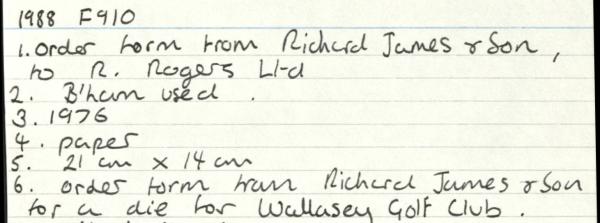 1988 F910
1. Order form from Richard James & Son,
to R. Rogers Ltd
2. B'ham used.
3. 1976
4. paper
5. 21 cm x 14 cm
6. Order form from Richard James & Son
for a die for Wallasey Golf Club.